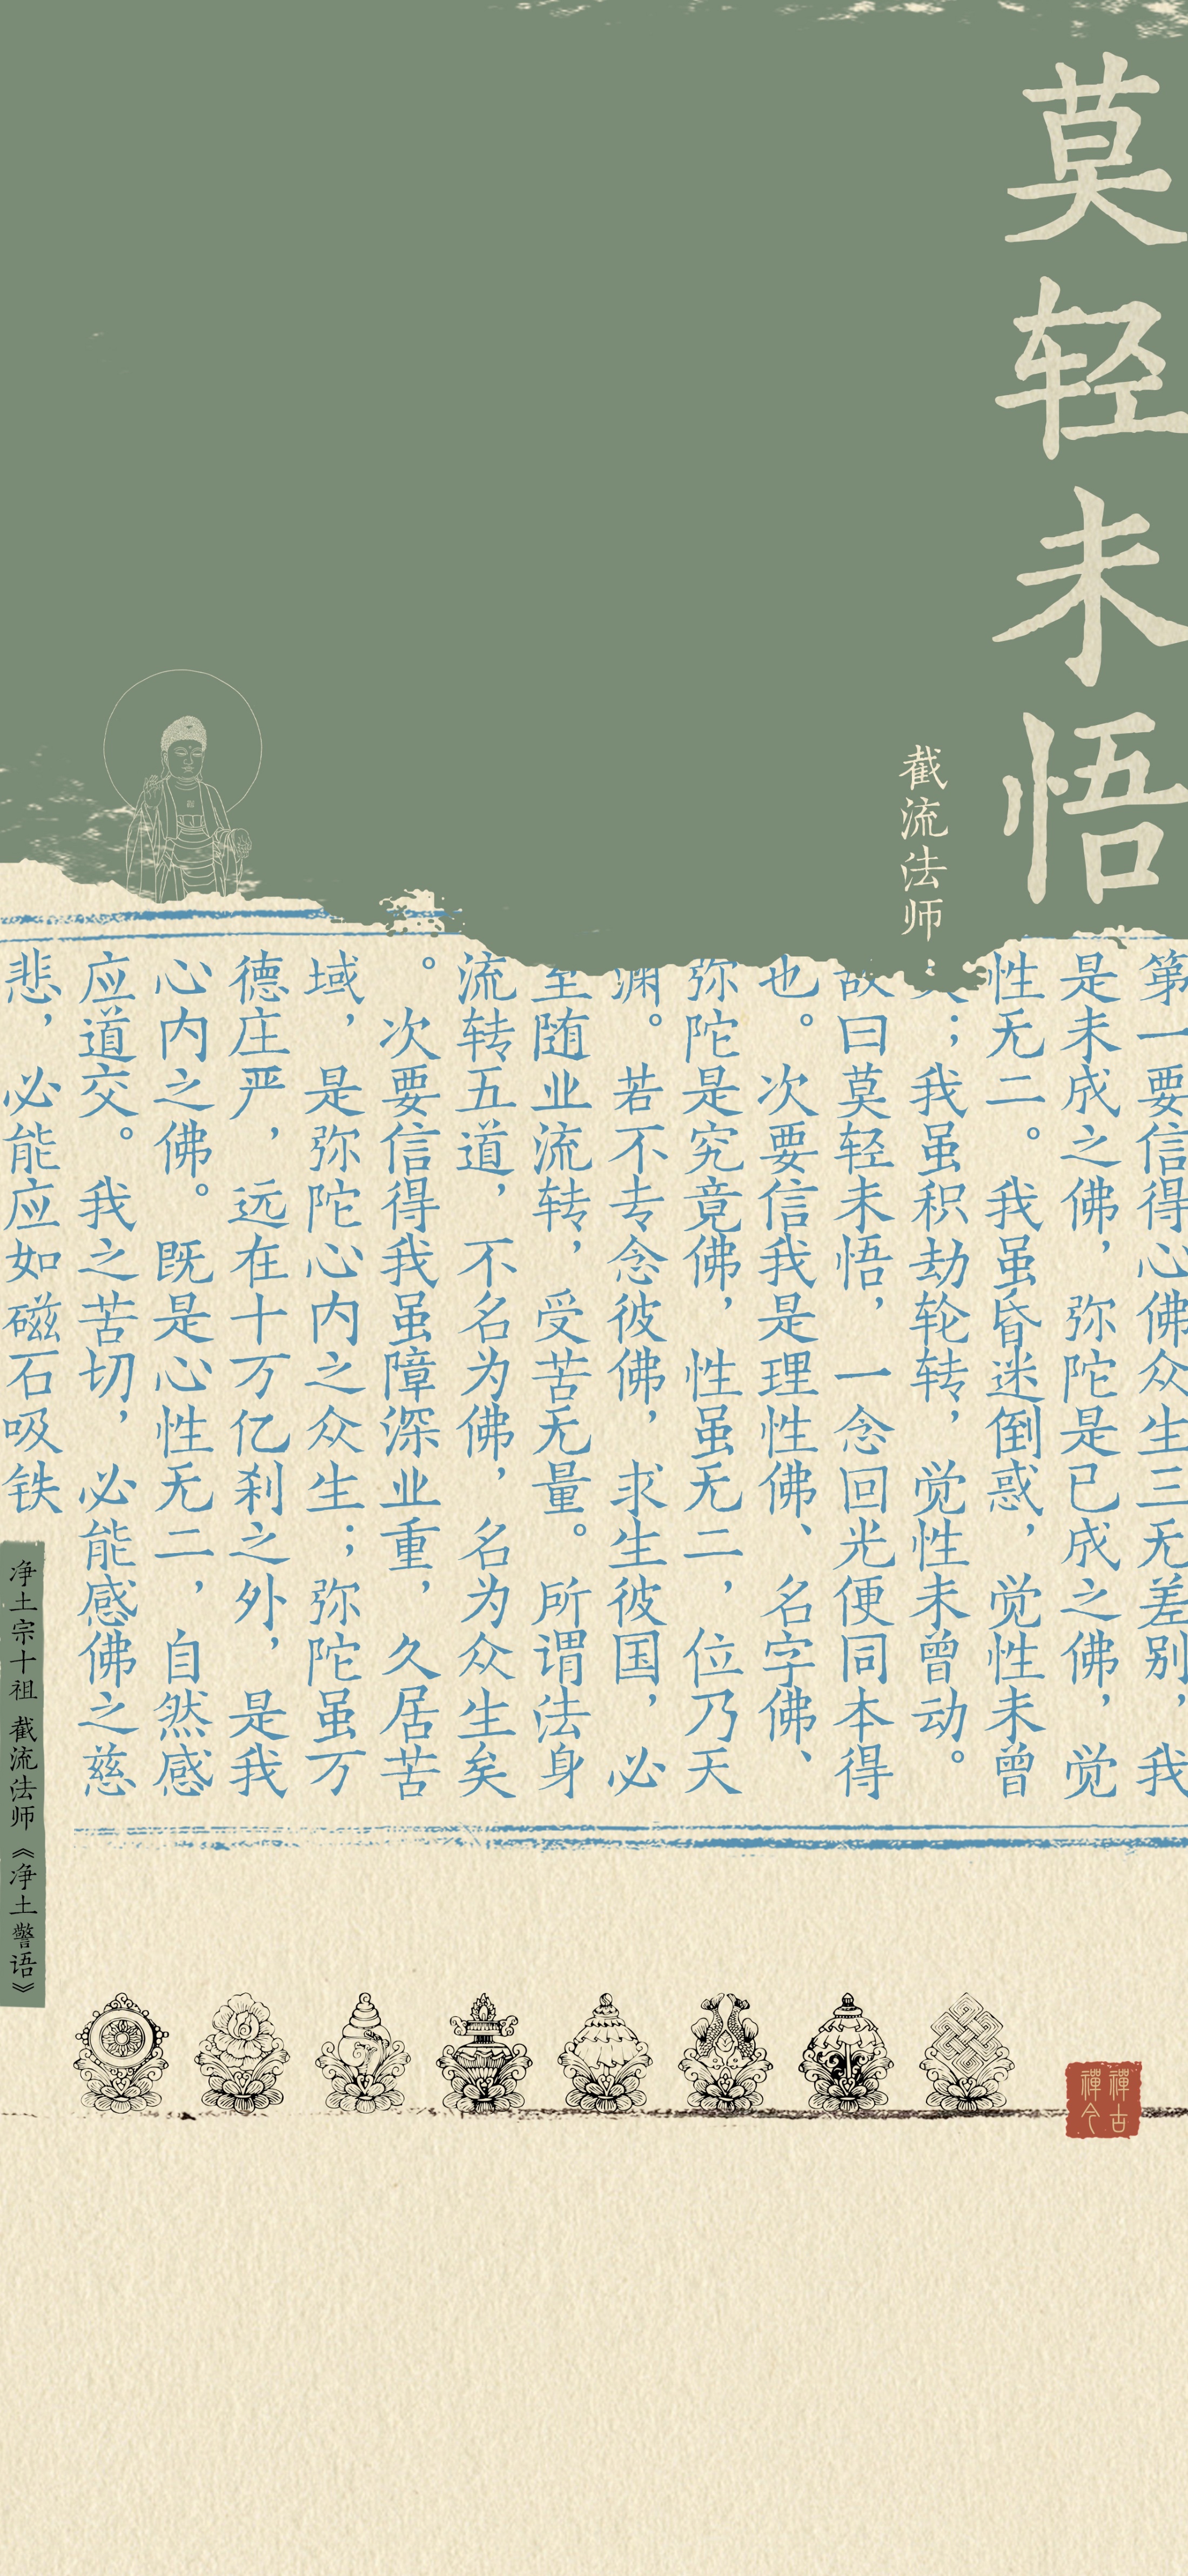 莫轻未悟
截流法师
第一要信得心佛众生三无差别，我
是未成之佛，弥陀是已成之佛，觉
性无二。我虽昏迷倒惑，觉性未曾
；我虽积劫轮转，觉性未曾动。
故曰莫轻未悟，一念回光便同本得
也。次要信我是理性佛、名字佛、
弥陀是究竟佛，性虽无二，位乃天
渊。若不专念彼佛，求生彼国，必
至随业流转，受苦无量。所谓法身
流转五道，不名为佛，名为众生矣
。次要信得我虽障深业重，久居苦
域，是弥陀心内之众生；弥陀虽万
德庄严，远在十万亿刹之外，是我
心内之佛。既是心性无二，自然感
应道交。我之苦切，必能感佛之慈
悲，必能应如磁石吸铁
净土宗十祖 截流法师《净土警语》
禪古
禪今